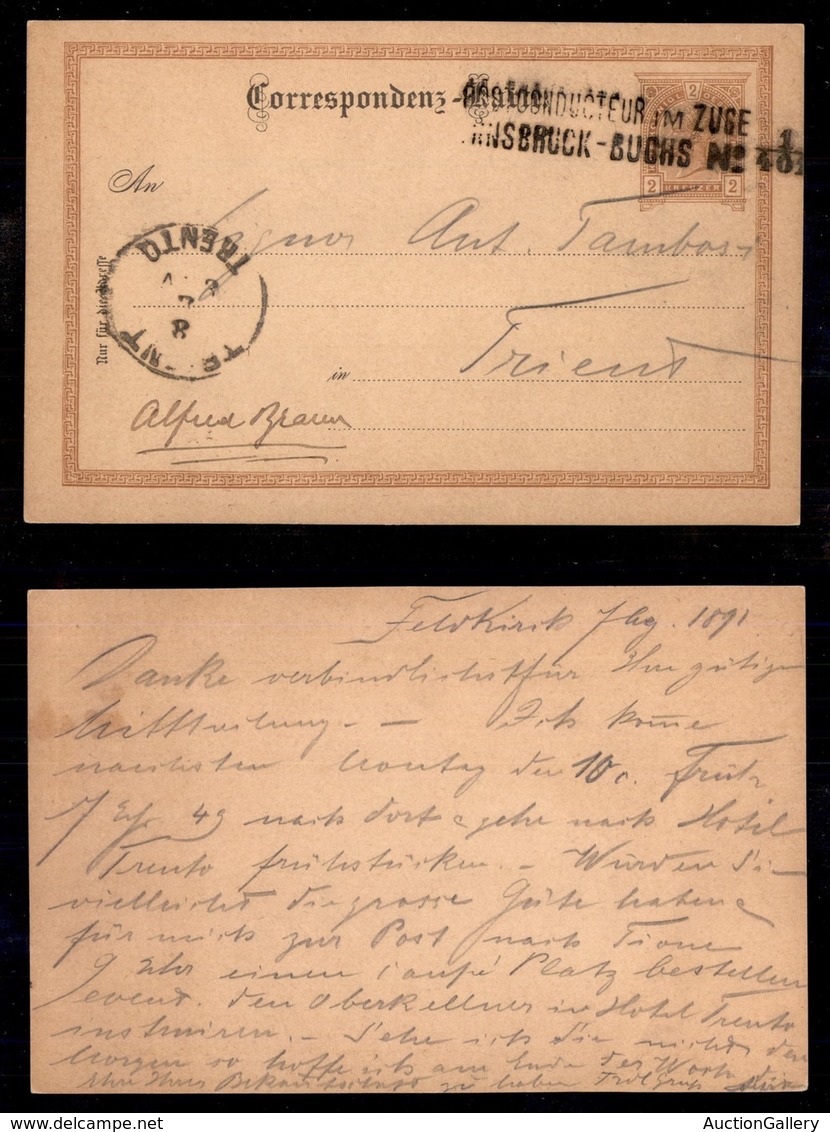 Correspondenz-Karte.
POSTCONDUCTEUR IM ZUGE
INNSBRUCK-BUCHS No
2
2 KREUZER 2
An
Signor Ant. Tambosi
TRENTO
TRIENT
8
Nur für die Adresse
in Trient
Alfred Braun
Feldkirch 1891
Danke verbindlichst für Ihre gütige
Mittheilung. — Ich komme
nächsten Montag den 10. Früh
7 Uhr 49 nach dort & gehe nach Hotel
Trento frühstücken. — Würden Sie
vielleicht die grosse Güte haben
für mich zur Post nach Tione
9 Uhr einen Coupé Platz bestellen
event. den Oberkellner in Hotel Trento
instruiren. — Sehe ich Sie nicht den
Morgen so hoffe ich am Ende der Woche die
Ehre Ihrer Bekanntschaft zu haben
AuctionGallery